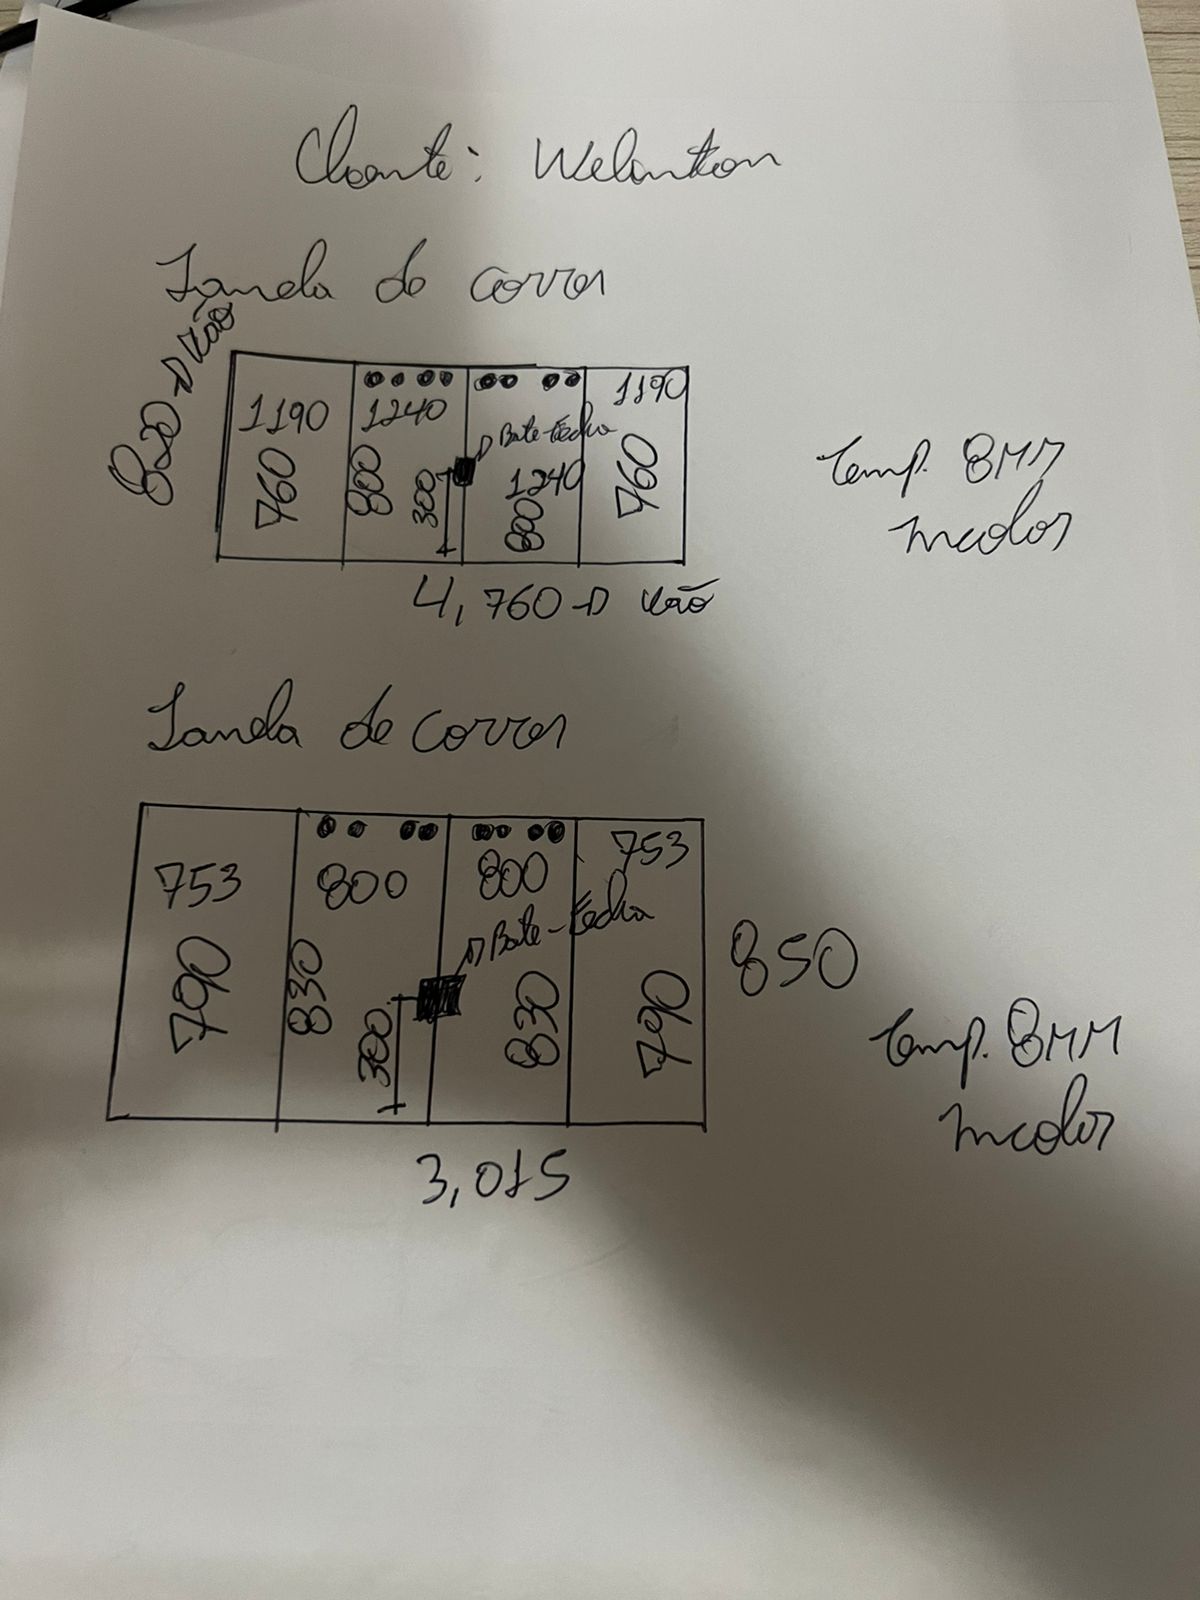 Cliente: Welinton
Janela de correr
820 → Vão
1190 1240 1190
Bate-fecha
760 800 300 1240 800 760
4,760 → Vão
Temp. 8MM
Incolor
Janela de correr
753 800 800 753
Bate-fecha
790 830 300 830 790
850
3,015
Temp. 8MM
Incolor